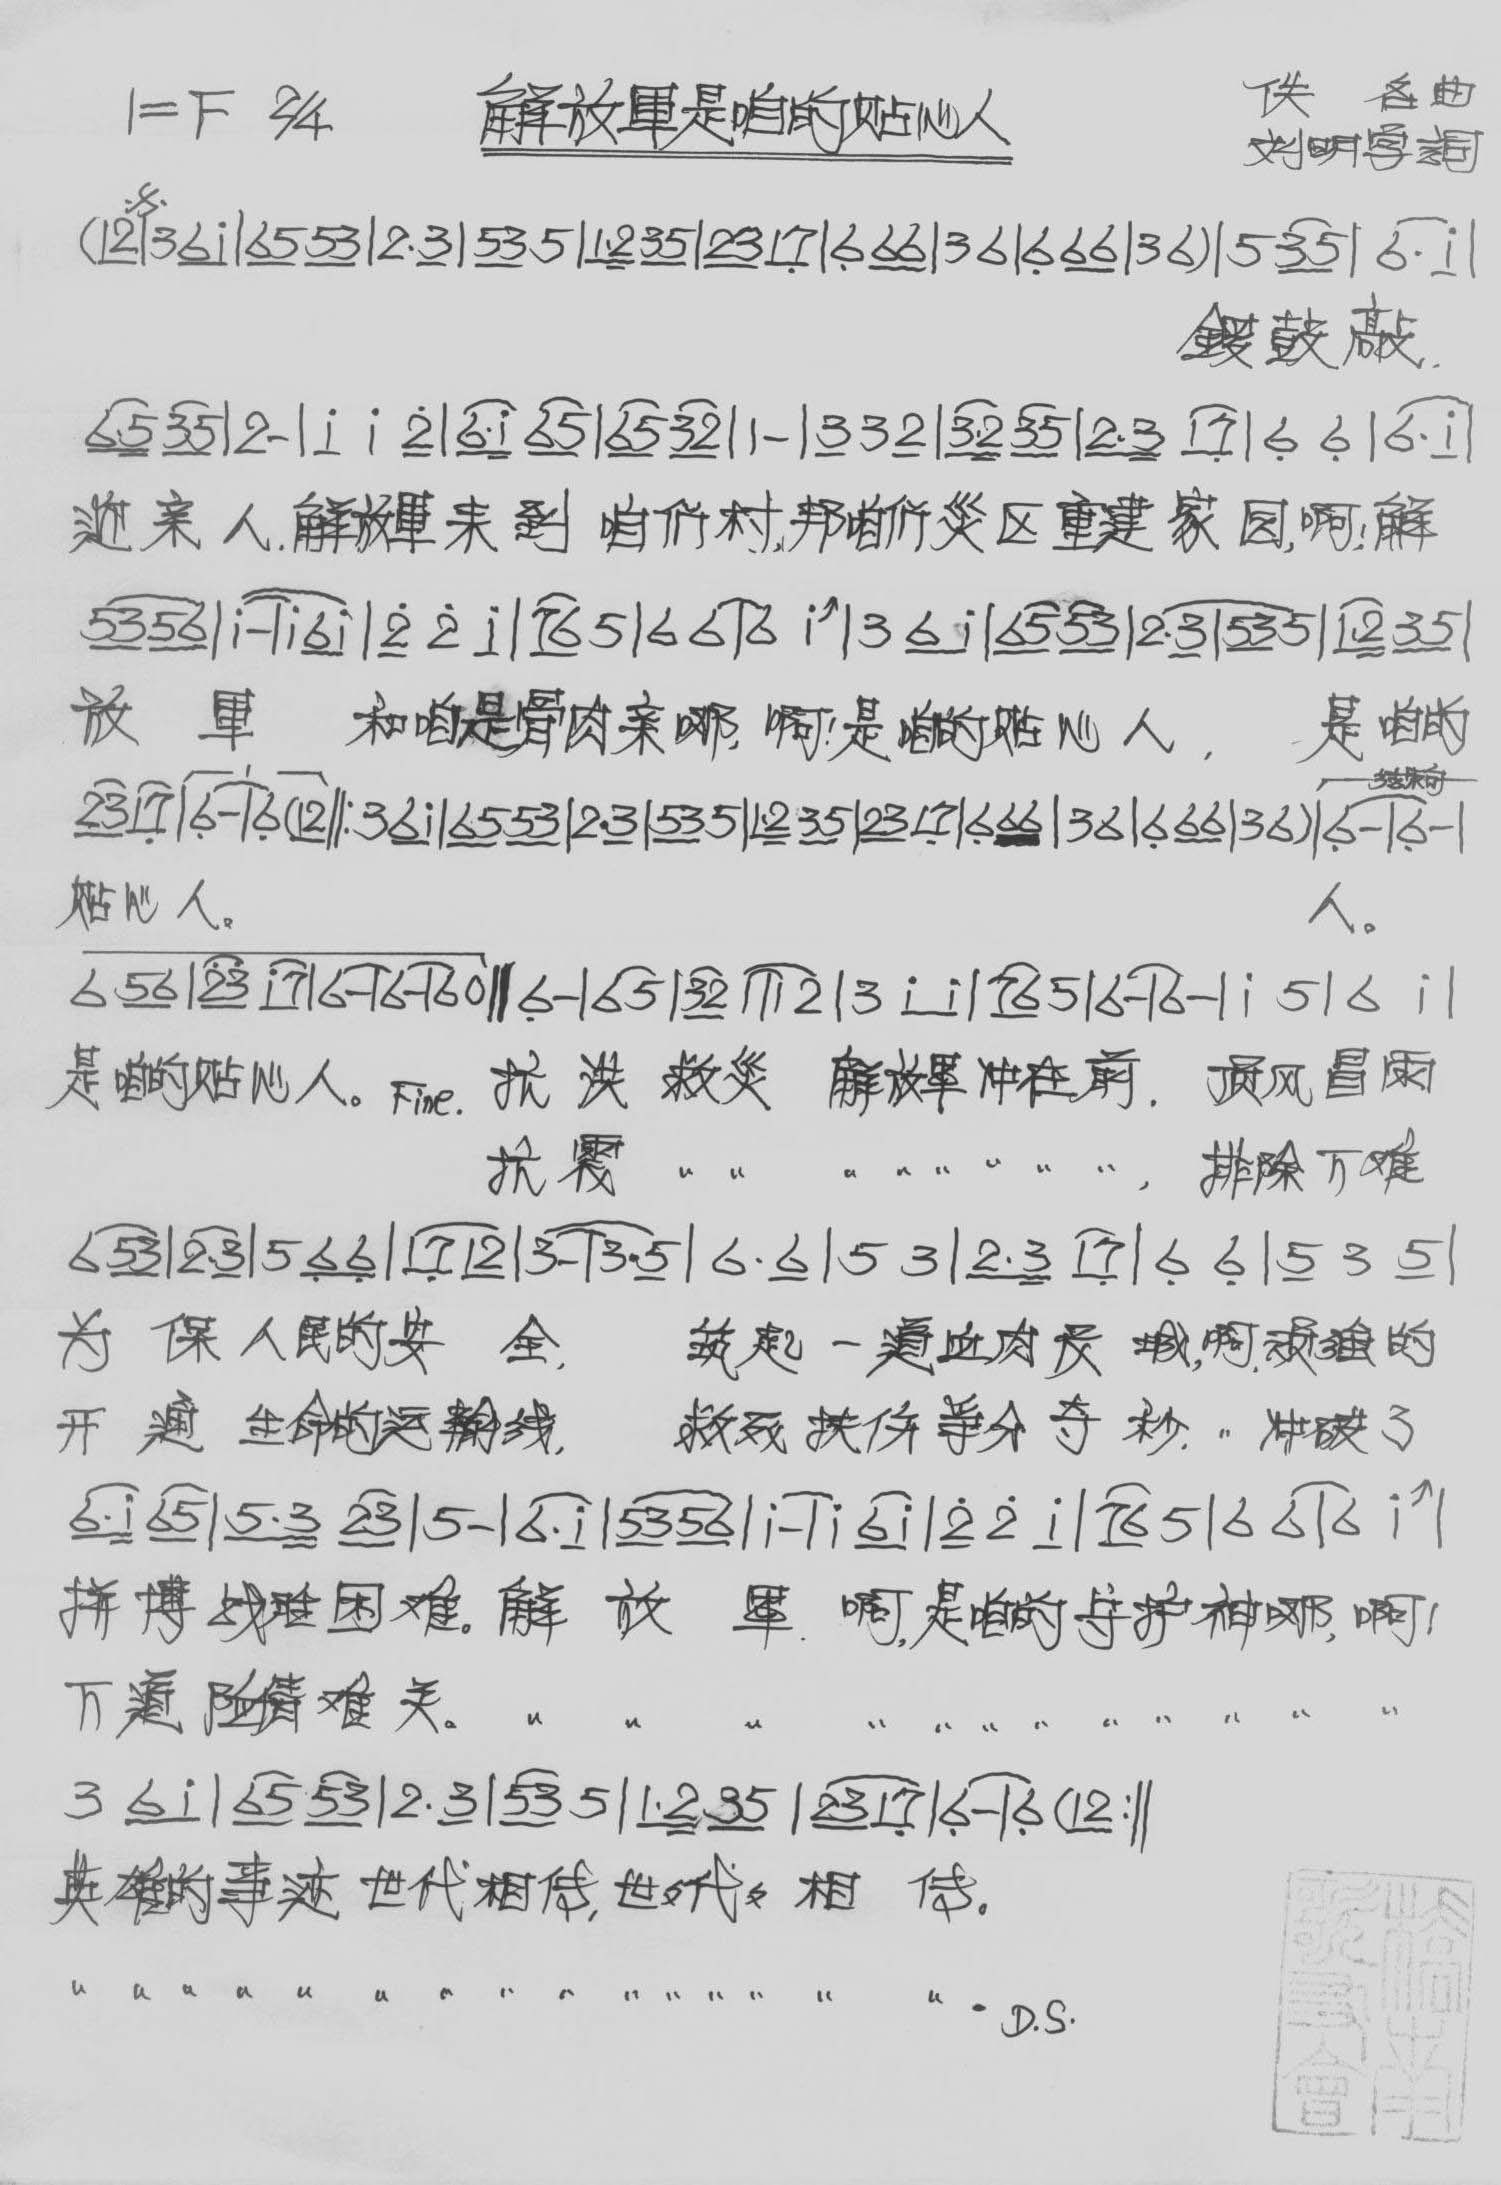 1=F 2/4 解放軍是咱的贴心人 佚 名曲
刘明字詞
(12|36i|6553|2·3|535|1·235|2317|666|36|666|36)|535|6·i|
鑼鼓敲.
6·535|2-|i i 2|6·i 65|6532|1-|332|3·235|2·3 17|6 6|6·i|
迎亲人.解放軍来到咱们村,帮咱们災区重建家园,啊!解
5356|i-|i6i|2 2 i|765|66|6 i|3 6i|6553|2·3|535|1·235|
放軍 和咱是骨肉亲哪,啊!是咱的贴心人, 是咱的
结束句
2317|6-|6(12‖:36i|6·553|2·3|535|1·235|2317|666|36|666|36)|6-|6-|
贴心人。 人。
6 56|23 i7|6-|6-|60‖6-|65|32 1|12|3 ii|765|6-|6-|i 5|6 i|
是咱的贴心人。Fine. 抗洪救災 解放軍冲在前. 顶风冒雨
抗震 〃 〃 〃 〃 〃 〃 〃 〃, 排除万难
653|2·3|566|1712|3-|3·5|6·6|53|2·3 17|6 6|5 3 5|
为保人民的安全, 筑起一道血肉长城,啊,顽强的
开通生命的运输线, 救死扶伤争分夺秒.〃冲破了
6·i 65|5·3 23|5-|6·i|5356|i-|i 6i|2 2 i|765|66|6 i|
拼博战胜困难。解放軍.啊,是咱的守护神哪,啊!
万道险情难关。〃 〃 〃 〃 〃 〃 〃 〃 〃 〃 〃 〃 〃
3 6i|65 53|2·3|535|1·2 35|2317|6-|6(12:‖
英雄的事迹世代相传,世々代々相传。
〃 〃 〃 〃 〃 〃 〃 〃 〃 〃 〃 〃 〃 〃 〃 〃. D.S.